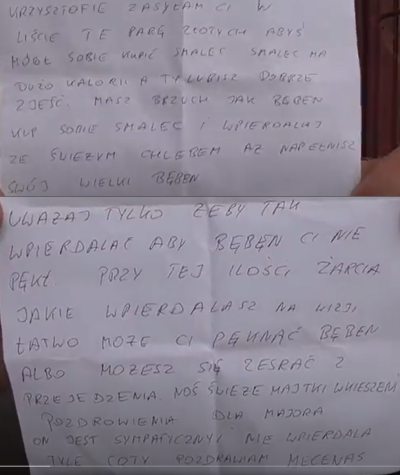 KRZYSZTOFIE ZASYŁAM CI W
LIŚCIE TE PARĘ ZŁOTYCH ABYŚ
MÓGŁ SOBIE KUPIĆ SMALEC SMALEC MA
DUŻO KALORII A TY LUBISZ DOBRZE
ZJEŚĆ. MASZ BRZUCH JAK BĘBEN
KUP SOBIE SMALEC I WPIERDALAJ
ZE ŚWIEŻYM CHLEBEM AŻ NAPEŁNISZ
SWÓJ WIELKI BĘBEN
UWAŻAJ TYLKO ŻEBY TAK
WPIERDALAĆ ABY BĘBEN CI NIE
PĘKŁ. PRZY TEJ ILOŚCI ŻARCIA
JAKIE WPIERDALASZ NA WIZJI
ŁATWO MOŻE CI PĘKNĄĆ BĘBEN
ALBO MOŻESZ SIĘ ZESRAĆ Z
PRZEJEDZENIA. NOŚ ŚWIEŻE MAJTKI W KIESZENI
POZDROWIENIA DLA MAJORA
ON JEST SYMPATYCZNY I NIE WPIERDALA
TYLE CO TY POZDRAWIAM MECENAS